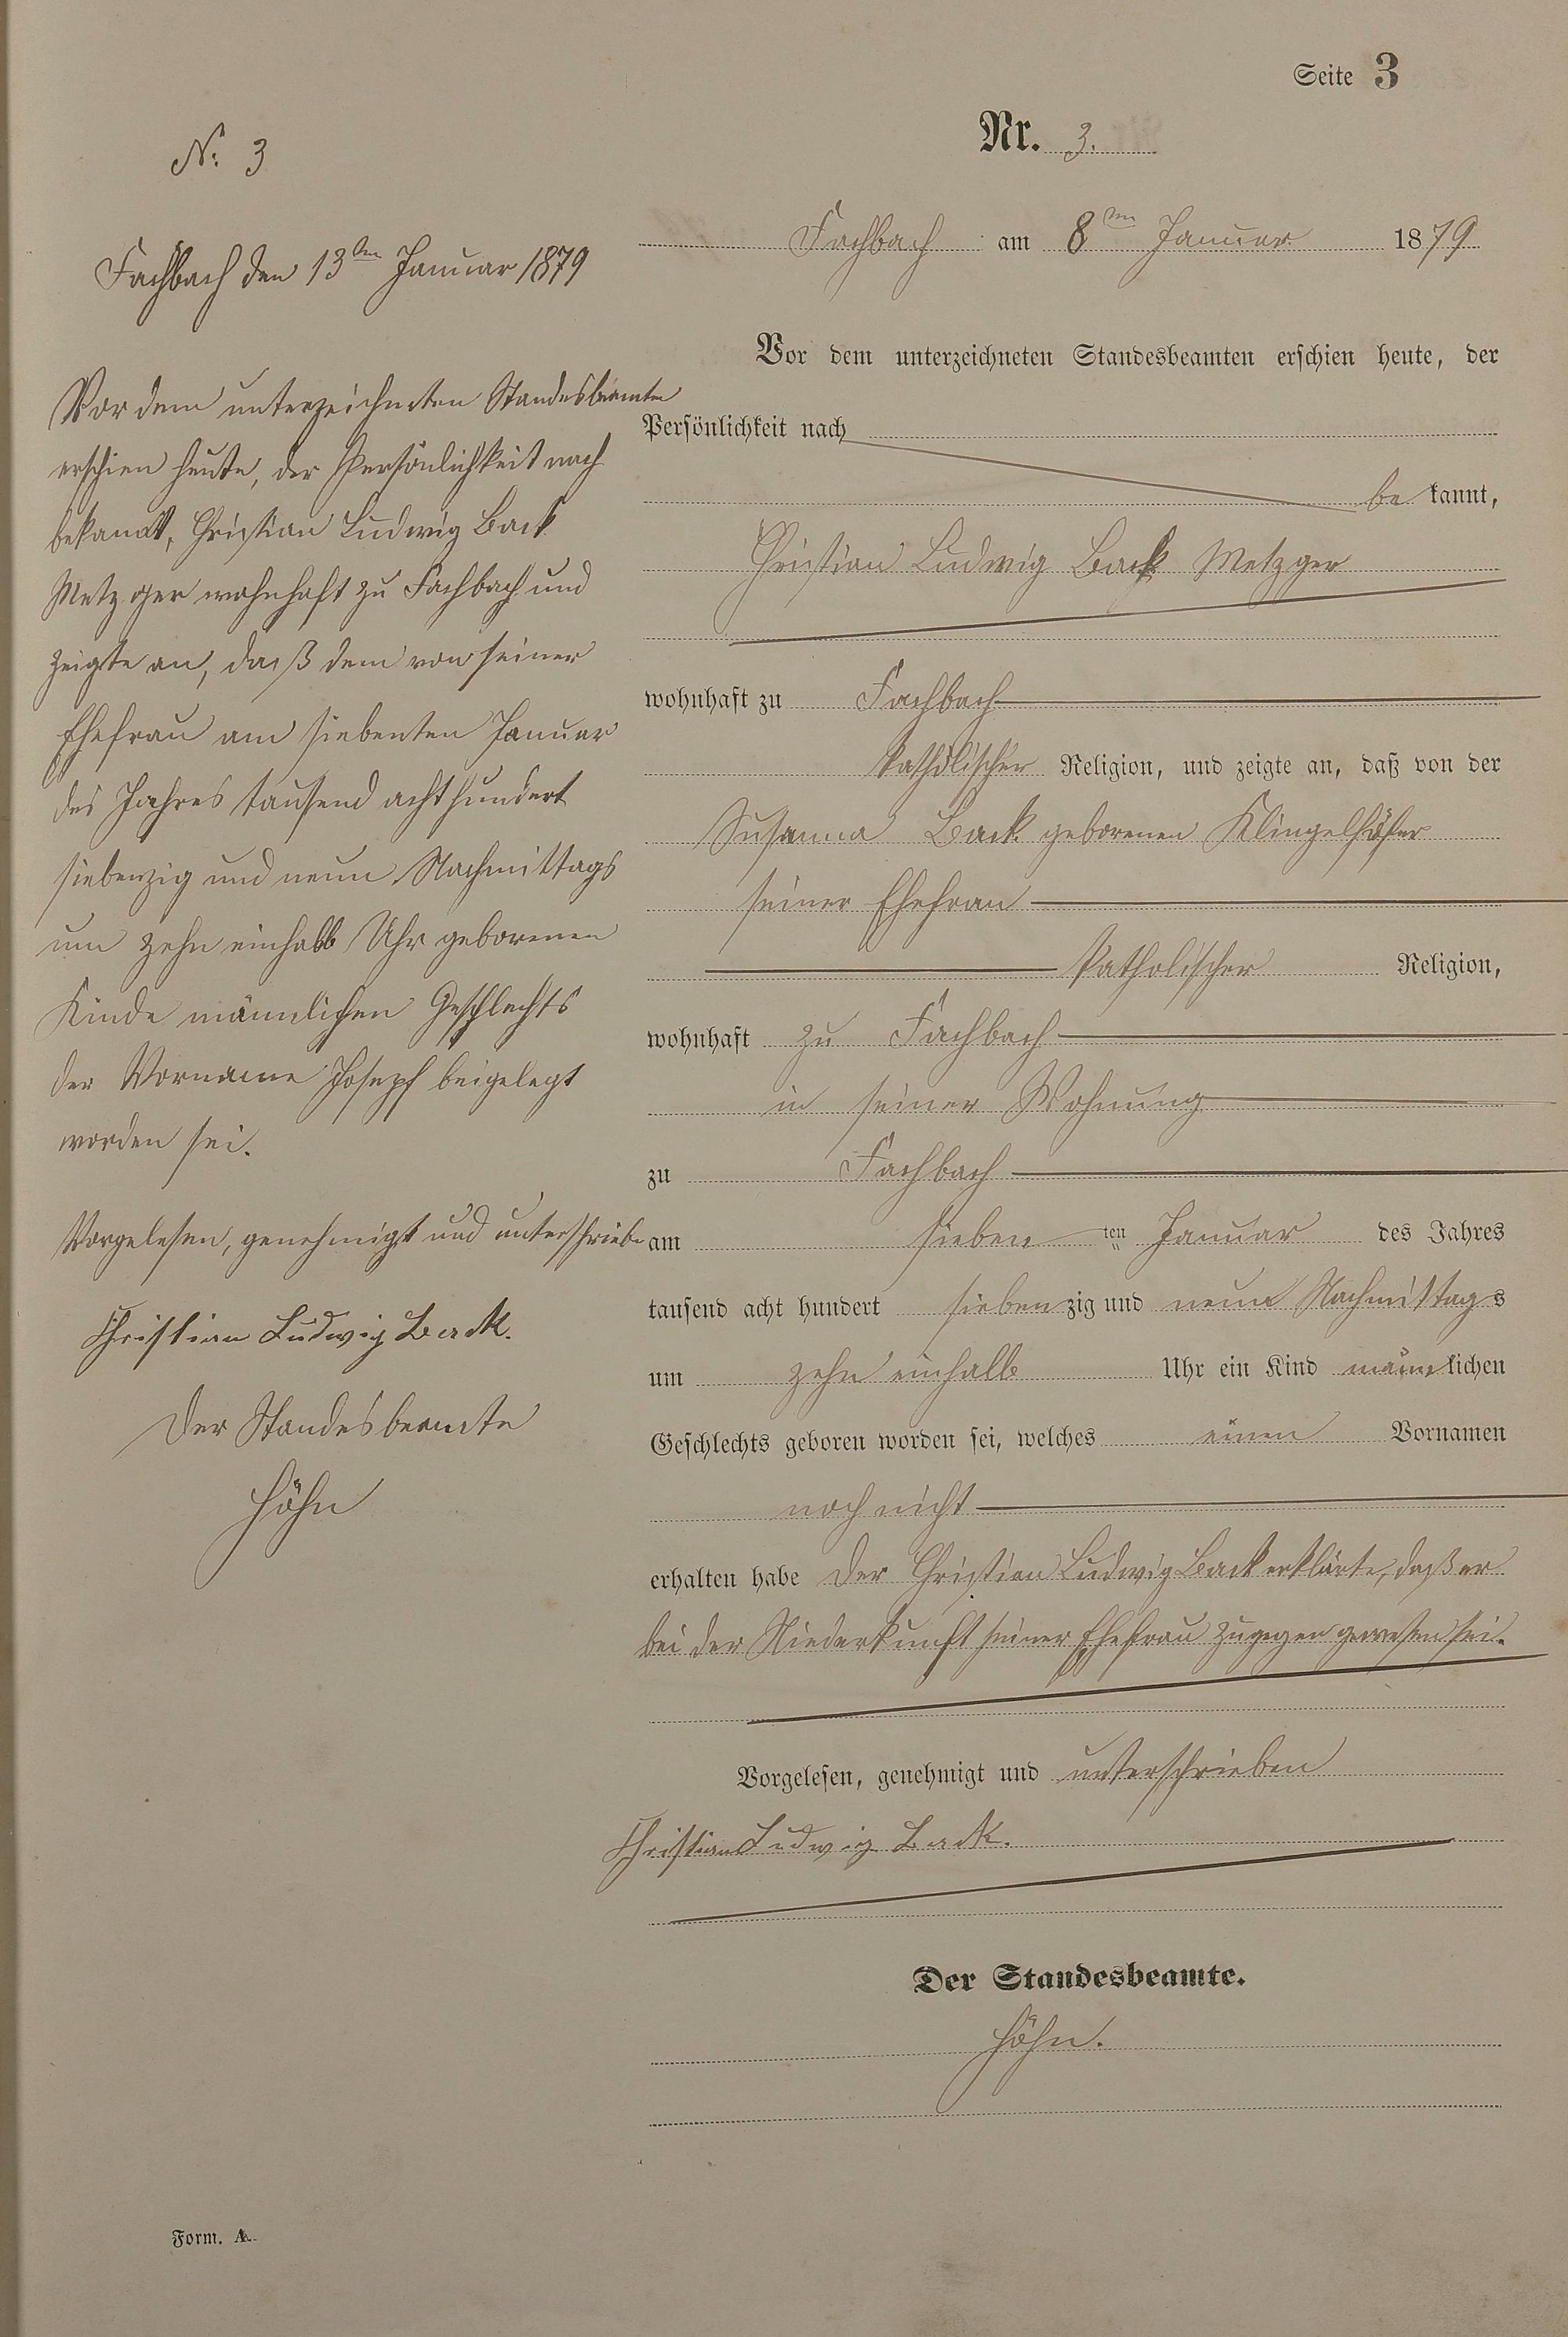 Seite 3
N: 3
Fachbach den 13ten Januar 1879
Vor dem unterzeichneten Standesbeamten
erschien heute, der Persönlichkeit nach
bekannt, Christian Ludwig Back
Metzger wohnhaft zu Fachbach und
zeigte an, daß dem von seiner
Ehefrau am siebenten Januar
des Jahres tausend achthundert
siebenzig und neun Nachmittags
um zehn einhalb Uhr geborenen
Kinde männlichen Geschlechts
der Vorname Joseph beigelegt
worden sei.
Vorgelesen, genehmigt und unterschrieben
Christian Ludwig Back.
Der Standesbeamte
Höhn
Nr. 3.
Fachbach am 8ten Januar 1879
Vor dem unterzeichneten Standesbeamten erschien heute, der
Persönlichkeit nach
be kannt,
Christian Ludwig Back Metzger
wohnhaft zu Fachbach
katholischer Religion, und zeigte an, daß von der
Susanna Back geborenen Klingelhöfer
seiner Ehefrau
katholischer Religion,
wohnhaft zu Fachbach
in seiner Wohnung
zu Fachbach
am sieben ten Januar des Jahres
tausend acht hundert siebenzig und neun Nachmittags
um zehn einhalb Uhr ein Kind männlichen
Geschlechts geboren worden sei, welches einen Vornamen
noch nicht
erhalten habe Der Christian Ludwig Back erklärte, daß er
bei der Niederkunft seiner Ehefrau zugegen gewesen sei.
Vorgelesen, genehmigt und unterschrieben
Christian Ludwig Back.
Der Standesbeamte.
Höhn.
Form. A.